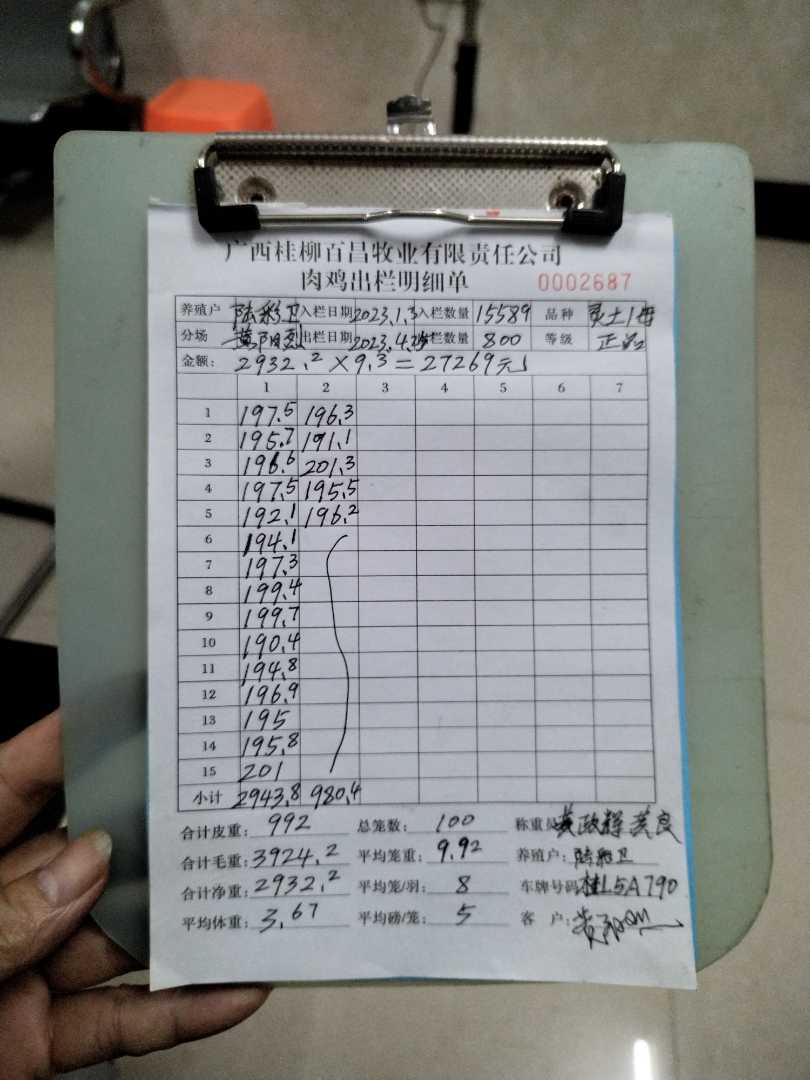 广西桂柳百昌牧业有限责任公司
肉鸡出栏明细单 0002687
养殖户 陆彩卫 入栏日期 2023.1.3 入栏数量 15589 品种 灵土1母
分场 黄阳烈 出栏日期 2023.4.25 栏数量 800 等级 正品
金额: 2932.2×9.3=27269元
1 2 3 4 5 6 7
1 197.5 196.3
2 195.7 191.1
3 196.6 201.3
4 197.5 195.5
5 192.1 196.2
6 194.1
7 197.3
8 199.4
9 199.7
10 190.4
11 194.8
12 196.9
13 195
14 195.8
15 201
小计 2943.8 980.4
合计皮重: 992 总笼数: 100 称重员
合计毛重: 3924.2 平均笼重: 9.92 养殖户: 陆彩卫
合计净重: 2932.2 平均笼/羽: 8 车牌号码 桂L5A790
平均体重: 3.67 平均磅/笼: 5 客户: